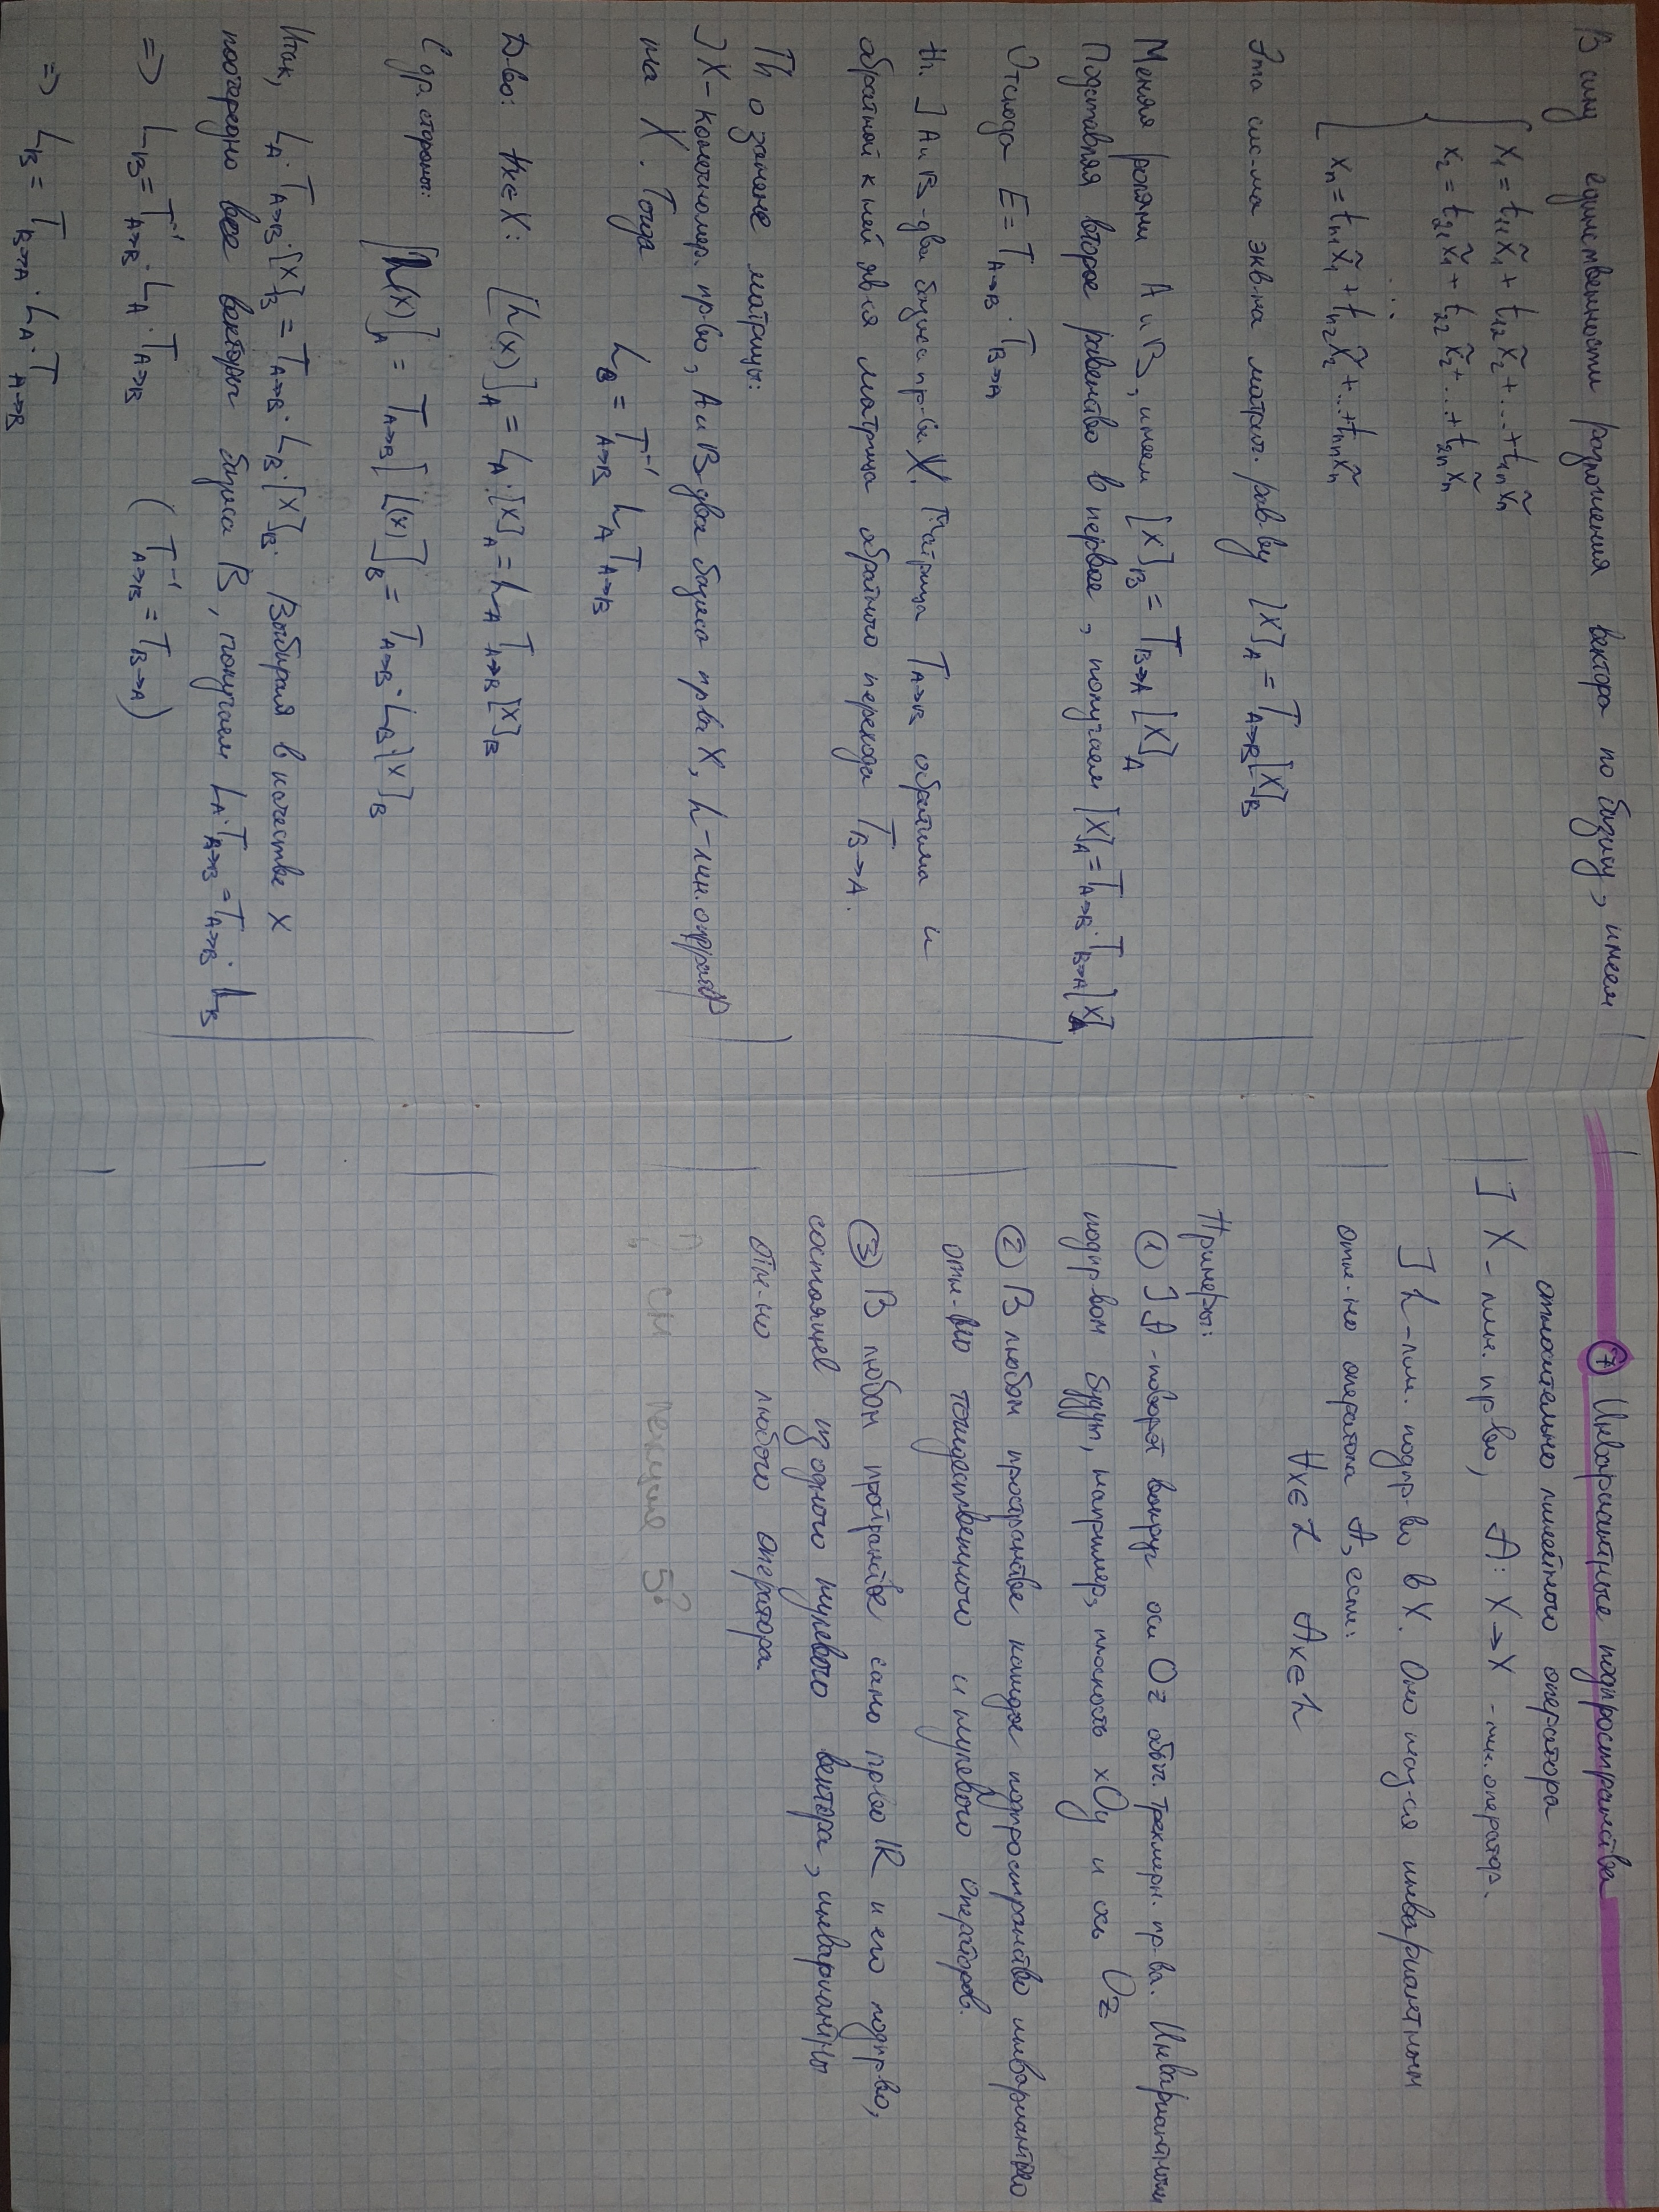 В силу единственности разложения вектора по базису, имеем
x₁ = t₁₁x̃₁ + t₁₂x̃₂ + ... + t₁ₙx̃ₙ
x₂ = t₂₁x̃₁ + t₂₂x̃₂ + ... + t₂ₙx̃ₙ
...
xₙ = tₙ₁x̃₁ + tₙ₂x̃₂ + ... + tₙₙx̃ₙ
Эта сис-ма экв-на матрич. рав-ву [X]_A = T_{A→B}[X]_B
Меняя ролями A и B, имеем [X]_B = T_{B→A}[X]_A
Подставляя второе равенство в первое, получаем [X]_A = T_{A→B}·T_{B→A}[X]_A
Отсюда E = T_{A→B}·T_{B→A}
th. ] A и B - два базиса пр-ва X. Матрица T_{A→B} обратима и
обратной к ней явл-ся матрица обратного перехода T_{B→A}.
Th о замене матрицы:
] X - конечномер. пр-во, A и B - два базиса пр-ва X, L - лин. оператор
на X. Тогда L_B = T⁻¹_{A→B} L_A T_{A→B}
Д-во: ∀x∈X: [L(x)]_A = L_A·[X]_A = L_A T_{A→B}[X]_B
С др. стороны: [L(x)]_A = T_{A→B}[L(x)]_B = T_{A→B}·L_B[X]_B
Итак, L_A·T_{A→B}·[X]_B = T_{A→B}·L_B·[X]_B. Выбирая в качестве x
поочередно все векторы базиса B, получаем L_A·T_{A→B} = T_{A→B}·L_B
⇒ L_B = T⁻¹_{A→B}·L_A·T_{A→B} (T⁻¹_{A→B} = T_{B→A})
⇒ L_B = T_{B→A}·L_A·T_{A→B}
⑦ Инвариантные подпространства
относительно линейного оператора
] X - лин. пр-во, A: X→X - лин. оператор.
] L - лин. подпр-во в X. Оно наз-ся инвариантным
отн-но оператора A, если:
∀x∈L Ax∈L
Примеры:
① ] A - поворот вокруг оси Oz обыч. трехмерн. пр-ва. Инвариантным
подпр-вом будут, например, плоскость xOy и ось Oz
② В любом пространстве каждое подпространство инвариантно
отн-но тождественного и нулевого операторов.
③ В любом пространстве само пр-во R и его подпр-во,
состоящее из одного нулевого вектора, инвариантны
отн-но любого оператора.
см лекцию 5?